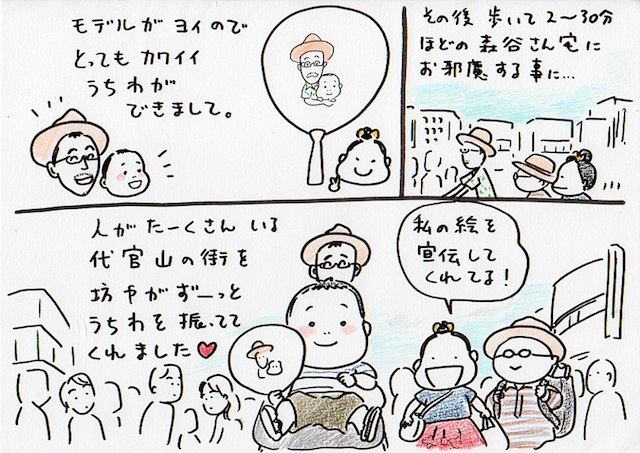 モデルが ヨイので
とっても カワイイ
うちわが
できまして。
その後 歩いて 2～30分
ほどの 森谷さん宅に
お邪魔する事に…
人が たーくさん いる
代官山の街を
坊やがずーっと
うちわを振ってて
くれました♥
私の絵を
宣伝して
くれてる！